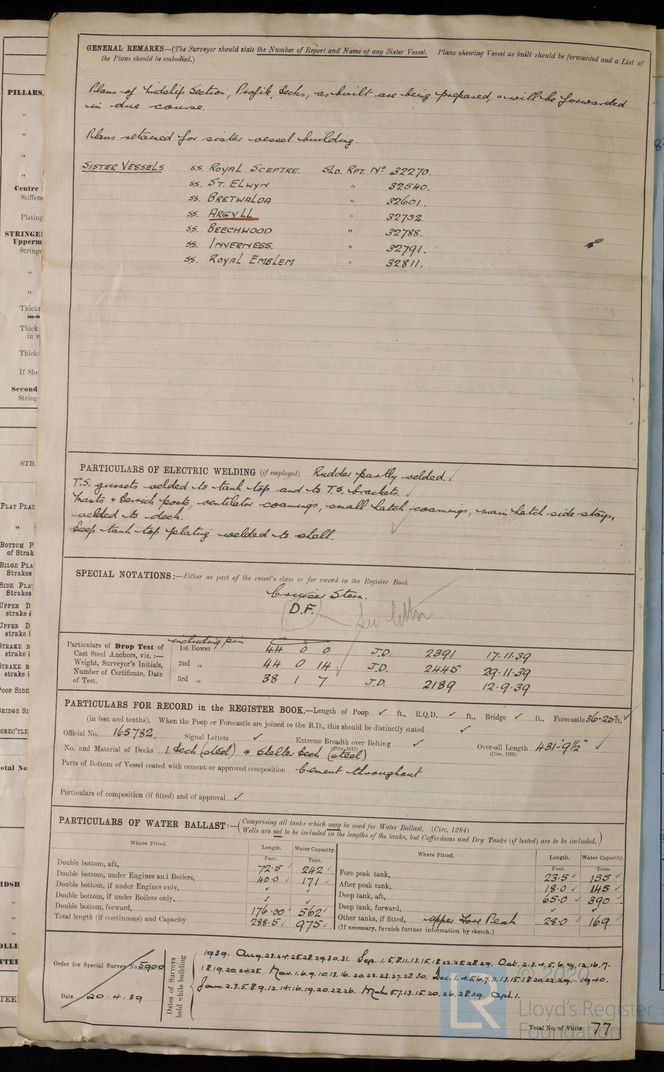 GENERAL REMARKS—(The Surveyor should state the Number of Report and Name of any Sister Vessel. Plans showing Vessel as built should be forwarded and a List of
the Plans should be embodied.)
Plans of Midship Section, Profile, Decks, as built are being prepared, & will be forwarded
in due course.
Plans retained for sister vessel building.
SISTER VESSELS SS. ROYAL SCEPTRE. SLD. RPT. Nº 32270.
SS. ST. ELWYN " 32540.
SS. BRETWALDA " 32601.
SS. ARGYLL " 32732.
SS. BEECHWOOD " 32788.
SS. INVERNESS. " 32791.
SS. ROYAL EMBLEM " 32811.
PARTICULARS OF ELECTRIC WELDING (if employed) Rudder partly welded ✓
T.S. gussets welded to tank top and to T.S. brackets. ✓
Masts & Derrick posts, ventilator coamings, small hatch coamings, main hatch side stays,
welded to deck.
Deep tank top plating welded to shell. ✓
SPECIAL NOTATIONS:—Either as part of the vessel's class or for record in the Register Book
Cruiser Stern.
D.F.
See letter
Particulars of Drop Test of including pin 1st Bower 44 0 0 J.D. 2391 17.11.39
Cast Steel Anchors, viz.:—
Weight, Surveyor's Initials, 2nd " 44 0 14 J.D. 2445 29.11.39
Number of Certificate, Date
of Test. 3rd " 38 1 7 J.D. 2189 12.9.39
PARTICULARS FOR RECORD in the REGISTER BOOK.—Length of Poop ✓ ft., R.Q.D. ✓ ft., Bridge ✓ ft., Forecastle 36.25 ft. ✓
(in feet and tenths). When the Poop or Forecastle are joined to the B.D., this should be distinctly stated ✓
Official No. 165782. Signal Letters ✓ Extreme Breadth over Belting ✓ Over-all Length 431'-9½" ✓
(Circ. 1611) (Circ. 1703)
No. and Material of Decks 1 Deck (steel) & Shelter Deck (steel)
Parts of Bottom of Vessel coated with cement or approved composition Cement throughout
Particulars of composition (if fitted) and of approval ✓
PARTICULARS OF WATER BALLAST:—(Comprising all tanks which may be used for Water Ballast. (Circ. 1284)
Wells are not to be included in the lengths of the tanks, but Cofferdams and Dry Tanks (if tested) are to be included.)
Where Fitted. Length. Water Capacity. Where Fitted. Length. Water Capacity.
Feet. Tons. Feet. Tons.
Double bottom, aft, 72.5 ✓ 242 ✓ Fore peak tank, 23.5 ✓ 155 ✓
Double bottom, under Engines and Boilers, 40.0 ✓ 171 ✓ After peak tank, 18.0 ✓ 145 ✓
Double bottom, if under Engines only, ✓ ✓ Deep tank, aft, 65.0 ✓ 390 ✓
Double bottom, if under Boilers only, ✓ ✓ Deep tank, forward, ✓
Double bottom, forward, 176.00 ✓ 562 ✓ Other tanks, if fitted, Upper Fore Peak 28.0 ✓ 169 ✓
Total length (if continuous) and Capacity 288.5 ✓ 975 ✓ (If necessary, furnish further information by sketch.)
Order for Special Survey No. 5900
Date 20.4.39
Dates of Surveys
held while building
1939. Aug.
Total No. of Visits 77
PILLARS,
Centre
Plating
Second
© 2020
LR
Lloyd's Register
Foundation